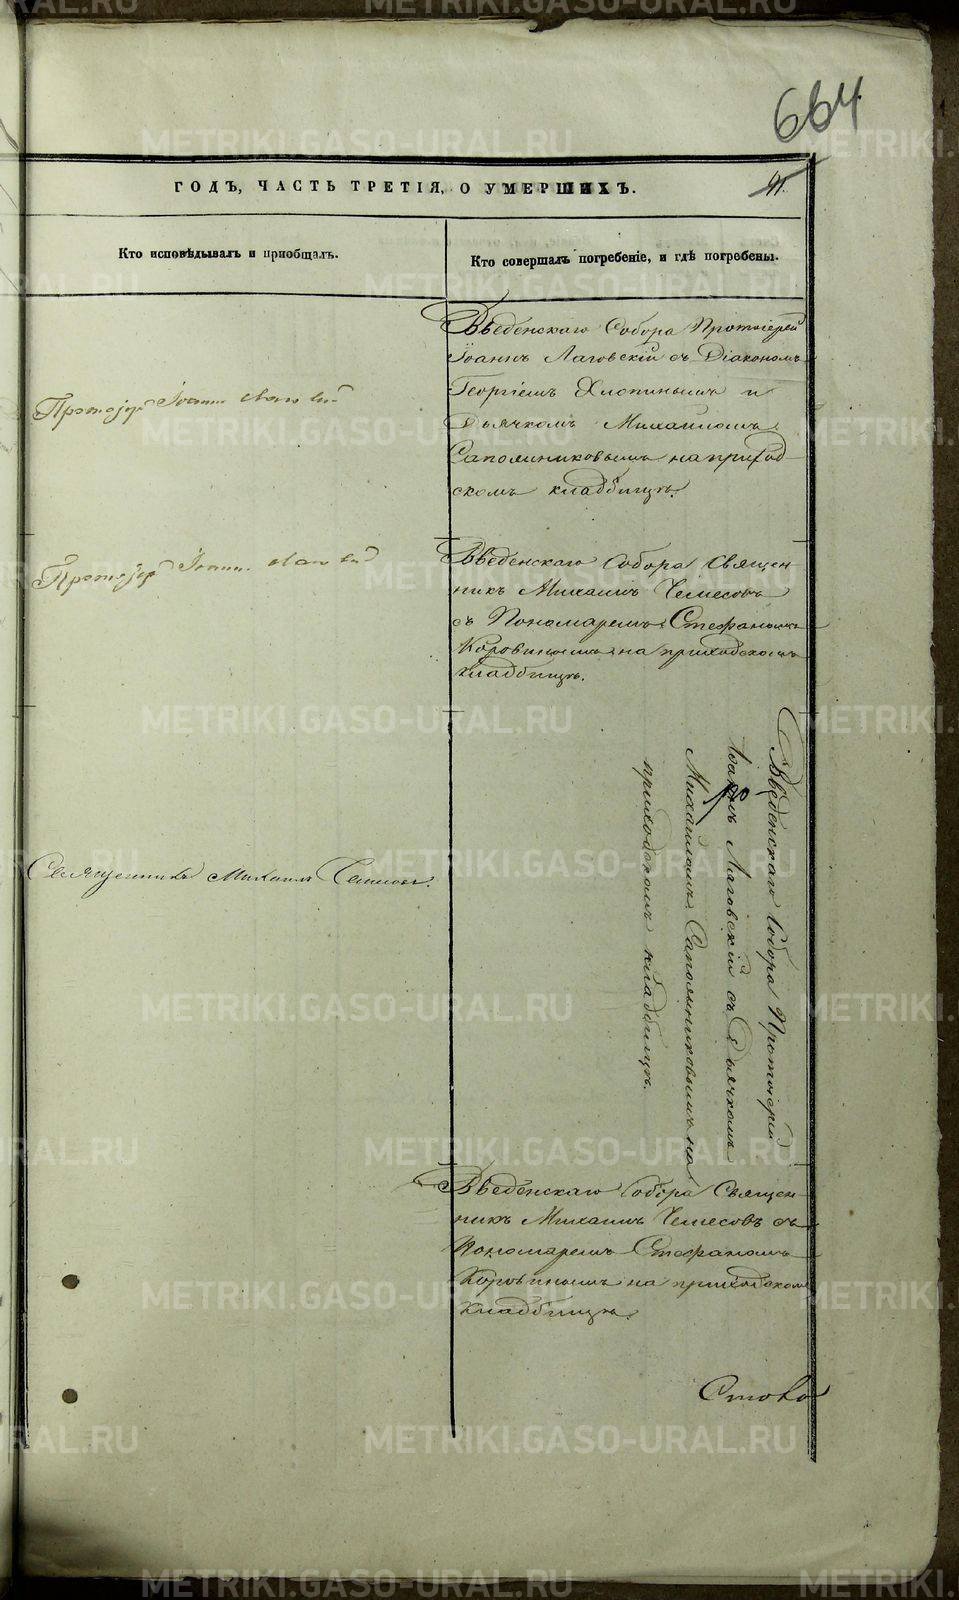 664
ГОДЪ, ЧАСТЬ ТРЕТІЯ, О УМЕРШИХЪ.
41.
Кто исповѣдывалъ и приобщалъ.
Кто совершалъ погребеніе, и гдѣ погребены.
Введенскаго Собора Протоіерей
Іоаннъ Лаговскій съ Діакономъ
Георгіемъ Хлопинымъ и
Дьячкомъ Михаиломъ
Сапожниковымъ на приход-
скомъ кладбищѣ.
Протоіер Іоаннъ Лаговскій
Введенскаго Собора Священ-
никъ Михаилъ Чемесовъ
съ Пономаремъ Стефаномъ
Коровинымъ на приходскомъ
кладбищѣ.
Протоіер Іоаннъ Лаговскій
Введенскаго Собора Протоіерей
Іоаннъ Лаговскій съ Дьячкомъ
Михайломъ Сапожниковымъ на
приходскомъ кладбищѣ.
Священникъ Михаилъ Чемесовъ.
Введенскаго Собора Священ-
никъ Михаилъ Чемесовъ съ
Пономаремъ Стефаномъ
Коровинымъ на приходскомъ
кладбищѣ.
METRIKI.GASO-URAL.RU